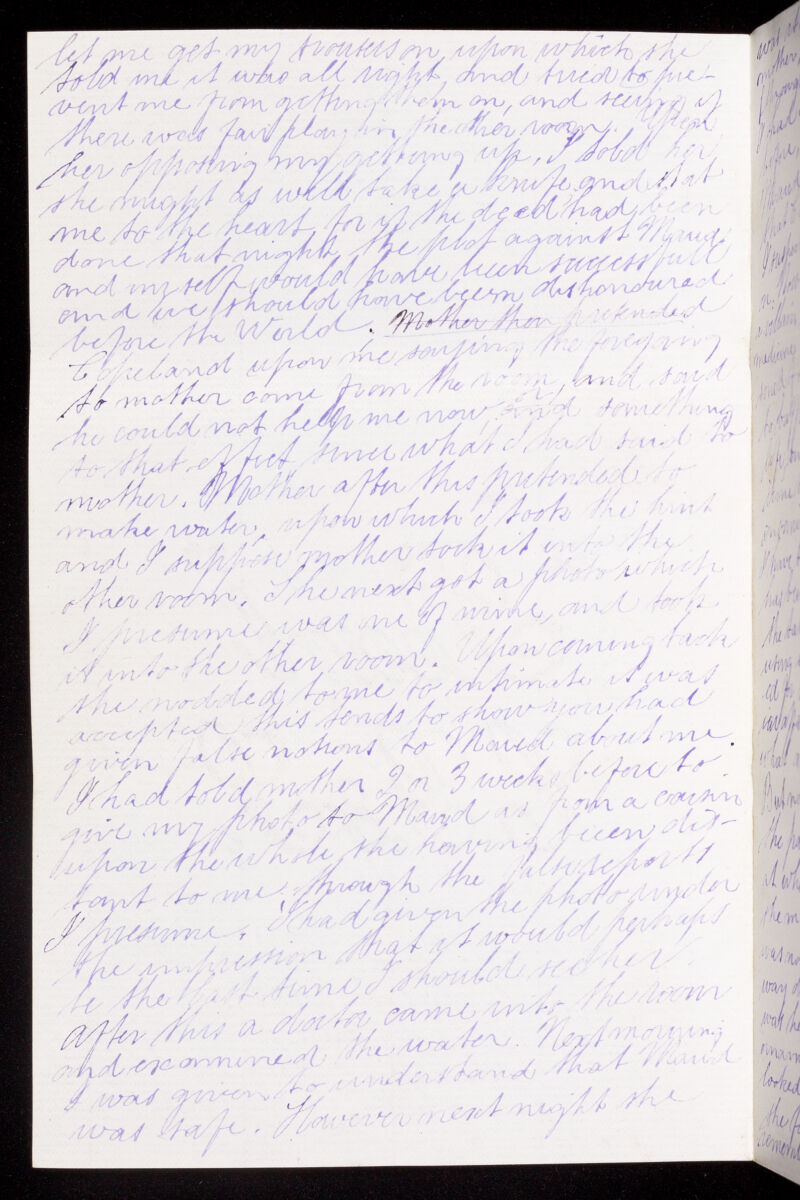 let me get my trousers on, upon which she
told me it was all right, and tried to pre-
vent me from getting them on, and seeing if
there was fair play in the other room. Upon
her opposing my getting up, I told her
she might as well take a knife and stab
me to the heart, for if the deed had been
done that night, the plot against Maud
and myself would have been sucessfull
and we should have been dishonoured
before the World. Mother then pretended
Copeland upon me saying the foregoing
to mother came from the room, and said
he could not help me now, and something
to that effect, since what I had said to
mother. Mother after this pretended to
make water, upon which I took the hint
and I suppose mother took it into the
other room. She next got a photo which
I presume was one of mine, and took
it into the other room. Upon coming back
she nodded to me to intimate it was
accepted, this tends to show you had
given false notions to Maud about me.
I had told mother 2 or 3 weeks before to
give my photo to Maud as from a cousin
upon the whole, she having been dis-
tant to me, through the false reports
I presume. I had given the photo under
the impression that it would perhaps
be the last time I should see her.
After this a doctor came into the room
and examined the water. Next morning
I was given to understand that Maud
was safe. However next night she